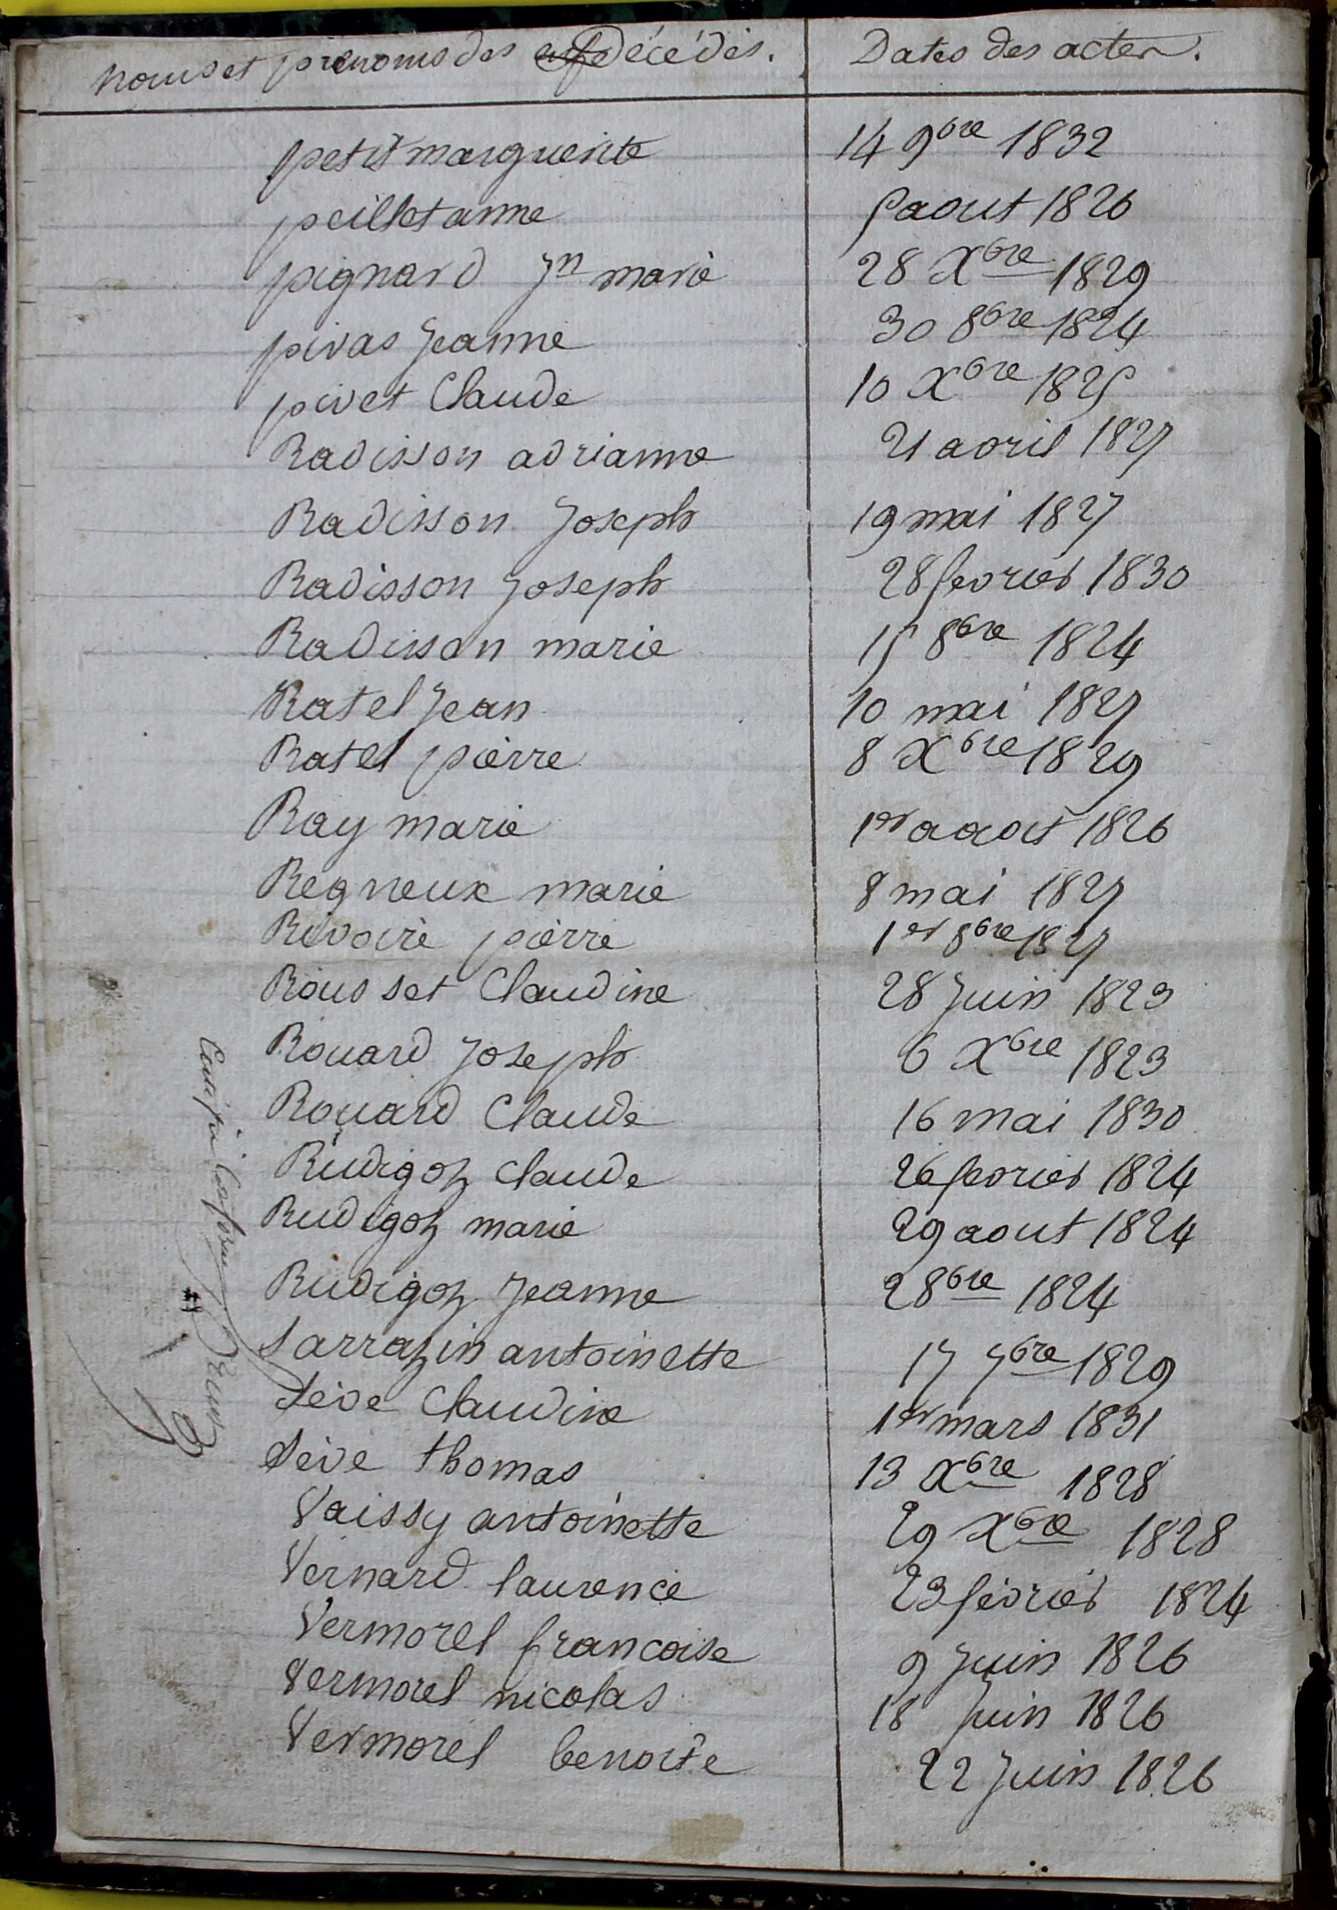 noms et prenoms des décédés. Dates des actes.
petit marguerite 14 9bre 1832
peillet anne 5 aout 1826
pignard Jn marie 28 Xbre 1829
pivas Jeanne 30 8bre 1824
pivet Claude 10 Xbre 1825
Radisson adrianne 21 avril 1827
Radisson Joseph 19 mai 1827
Radisson Joseph 28 fevrier 1830
Radisson marie 15 8bre 1824
Ratel Jean 10 mai 1827
Ratel pierre 8 Xbre 1829
Ray marie 1er aout 1826
Regneux marie 8 mai 1827
Rivoire pierre 1er 8bre 1827
Rousset Claudine 28 Juin 1823
Rouard Joseph 6 Xbre 1823
Rouard Claude 16 mai 1830
Rudigoz Claude 26 fevrier 1824
Rudigoz marie 29 aout 1824
Rudigoz Jeanne 2 8bre 1824
Sarrazin antoinette 17 7bre 1829
Sève Claudine 1er mars 1831
Sève thomas 13 Xbre 1828
Vaissy antoinette 29 Xbre 1828
Vernard laurence 23 février 1824
Vermorel francoise 9 Juin 1826
Vermorel nicolas 18 Juin 1826
Vermorel benoite 22 Juin 1826